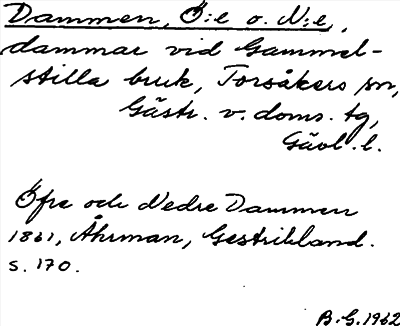 Dammen, Ö:e o. N:e,
dammar vid Gammel-
stilla bruk, Torsåkers sn,
Gästr. v. doms. tg,
Gävl. l.
Öfre och Nedre Dammen
1861, Åhrman, Gestrikland.
s. 170.
B.G. 1962